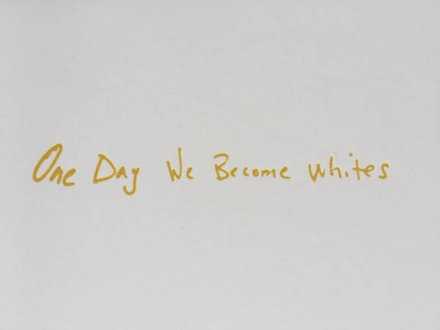 One Day We Become Whites